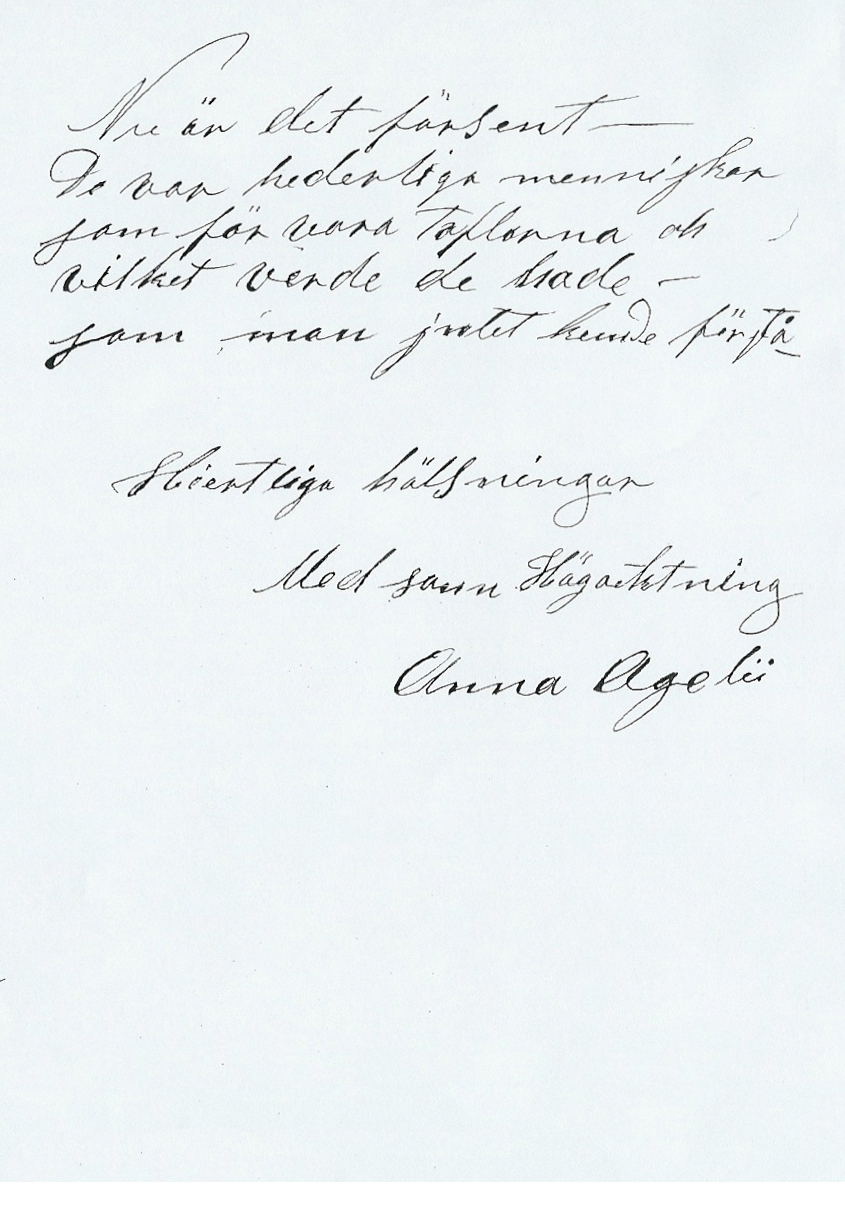 Nu är det försent —
De var hederliga menniskor
som för vara Taflorna och
vilket verde de hade —
som man jntet kunde förstå
Hiertliga hälsningar
Med sann Högacktning
Anna Agelii